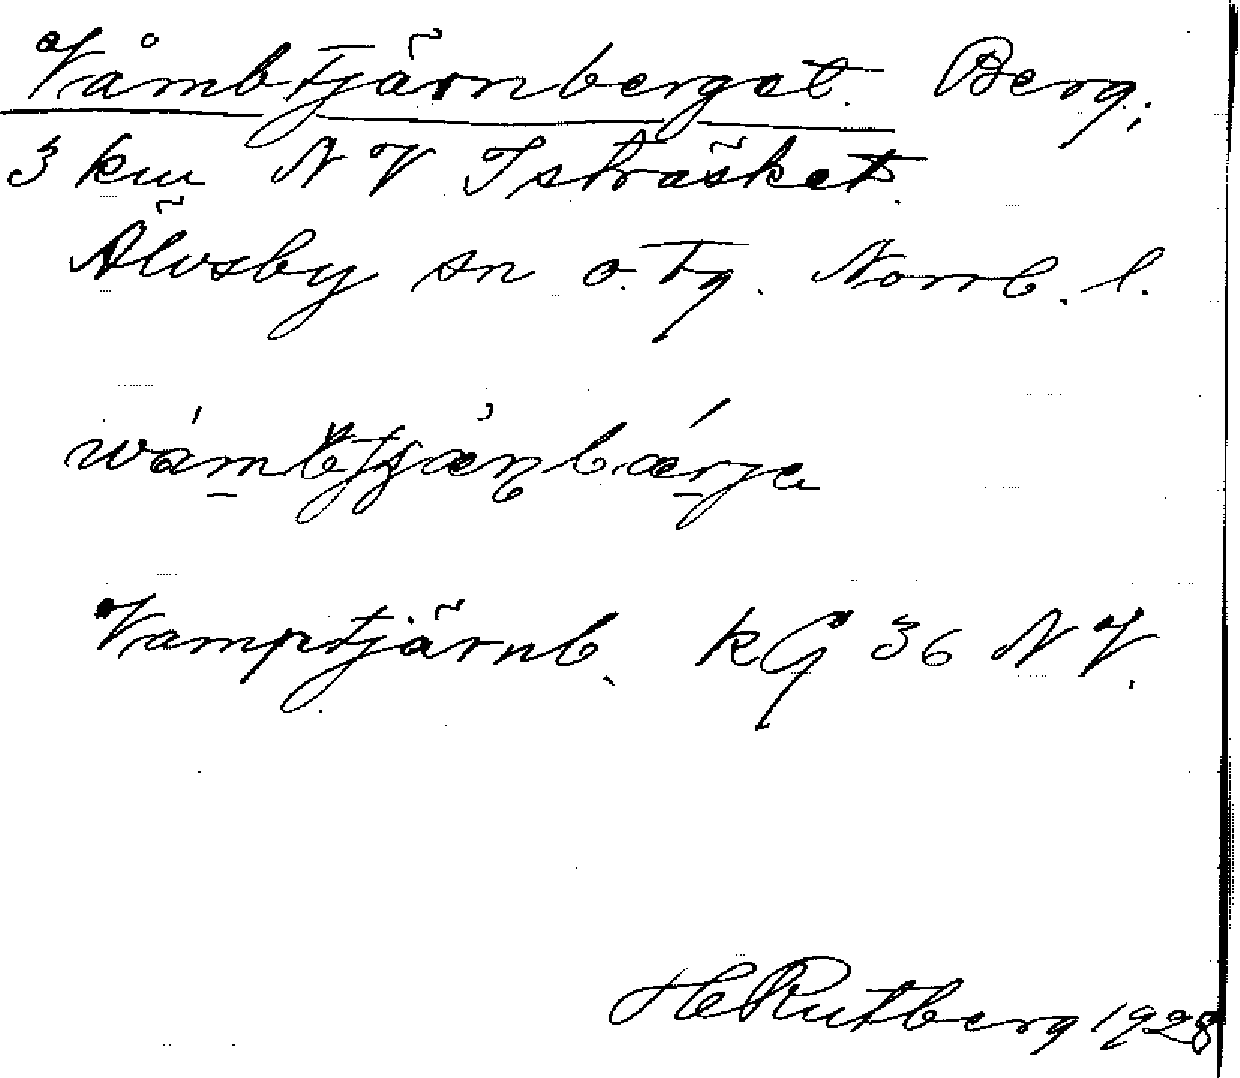 Våmbtjärnberget. Berg;
3 km N V Isträsket.
Älvsby sn o. Tg. Norrb. l.
Vamptjärnb. kG 36 N V.
H Rutberg 1928